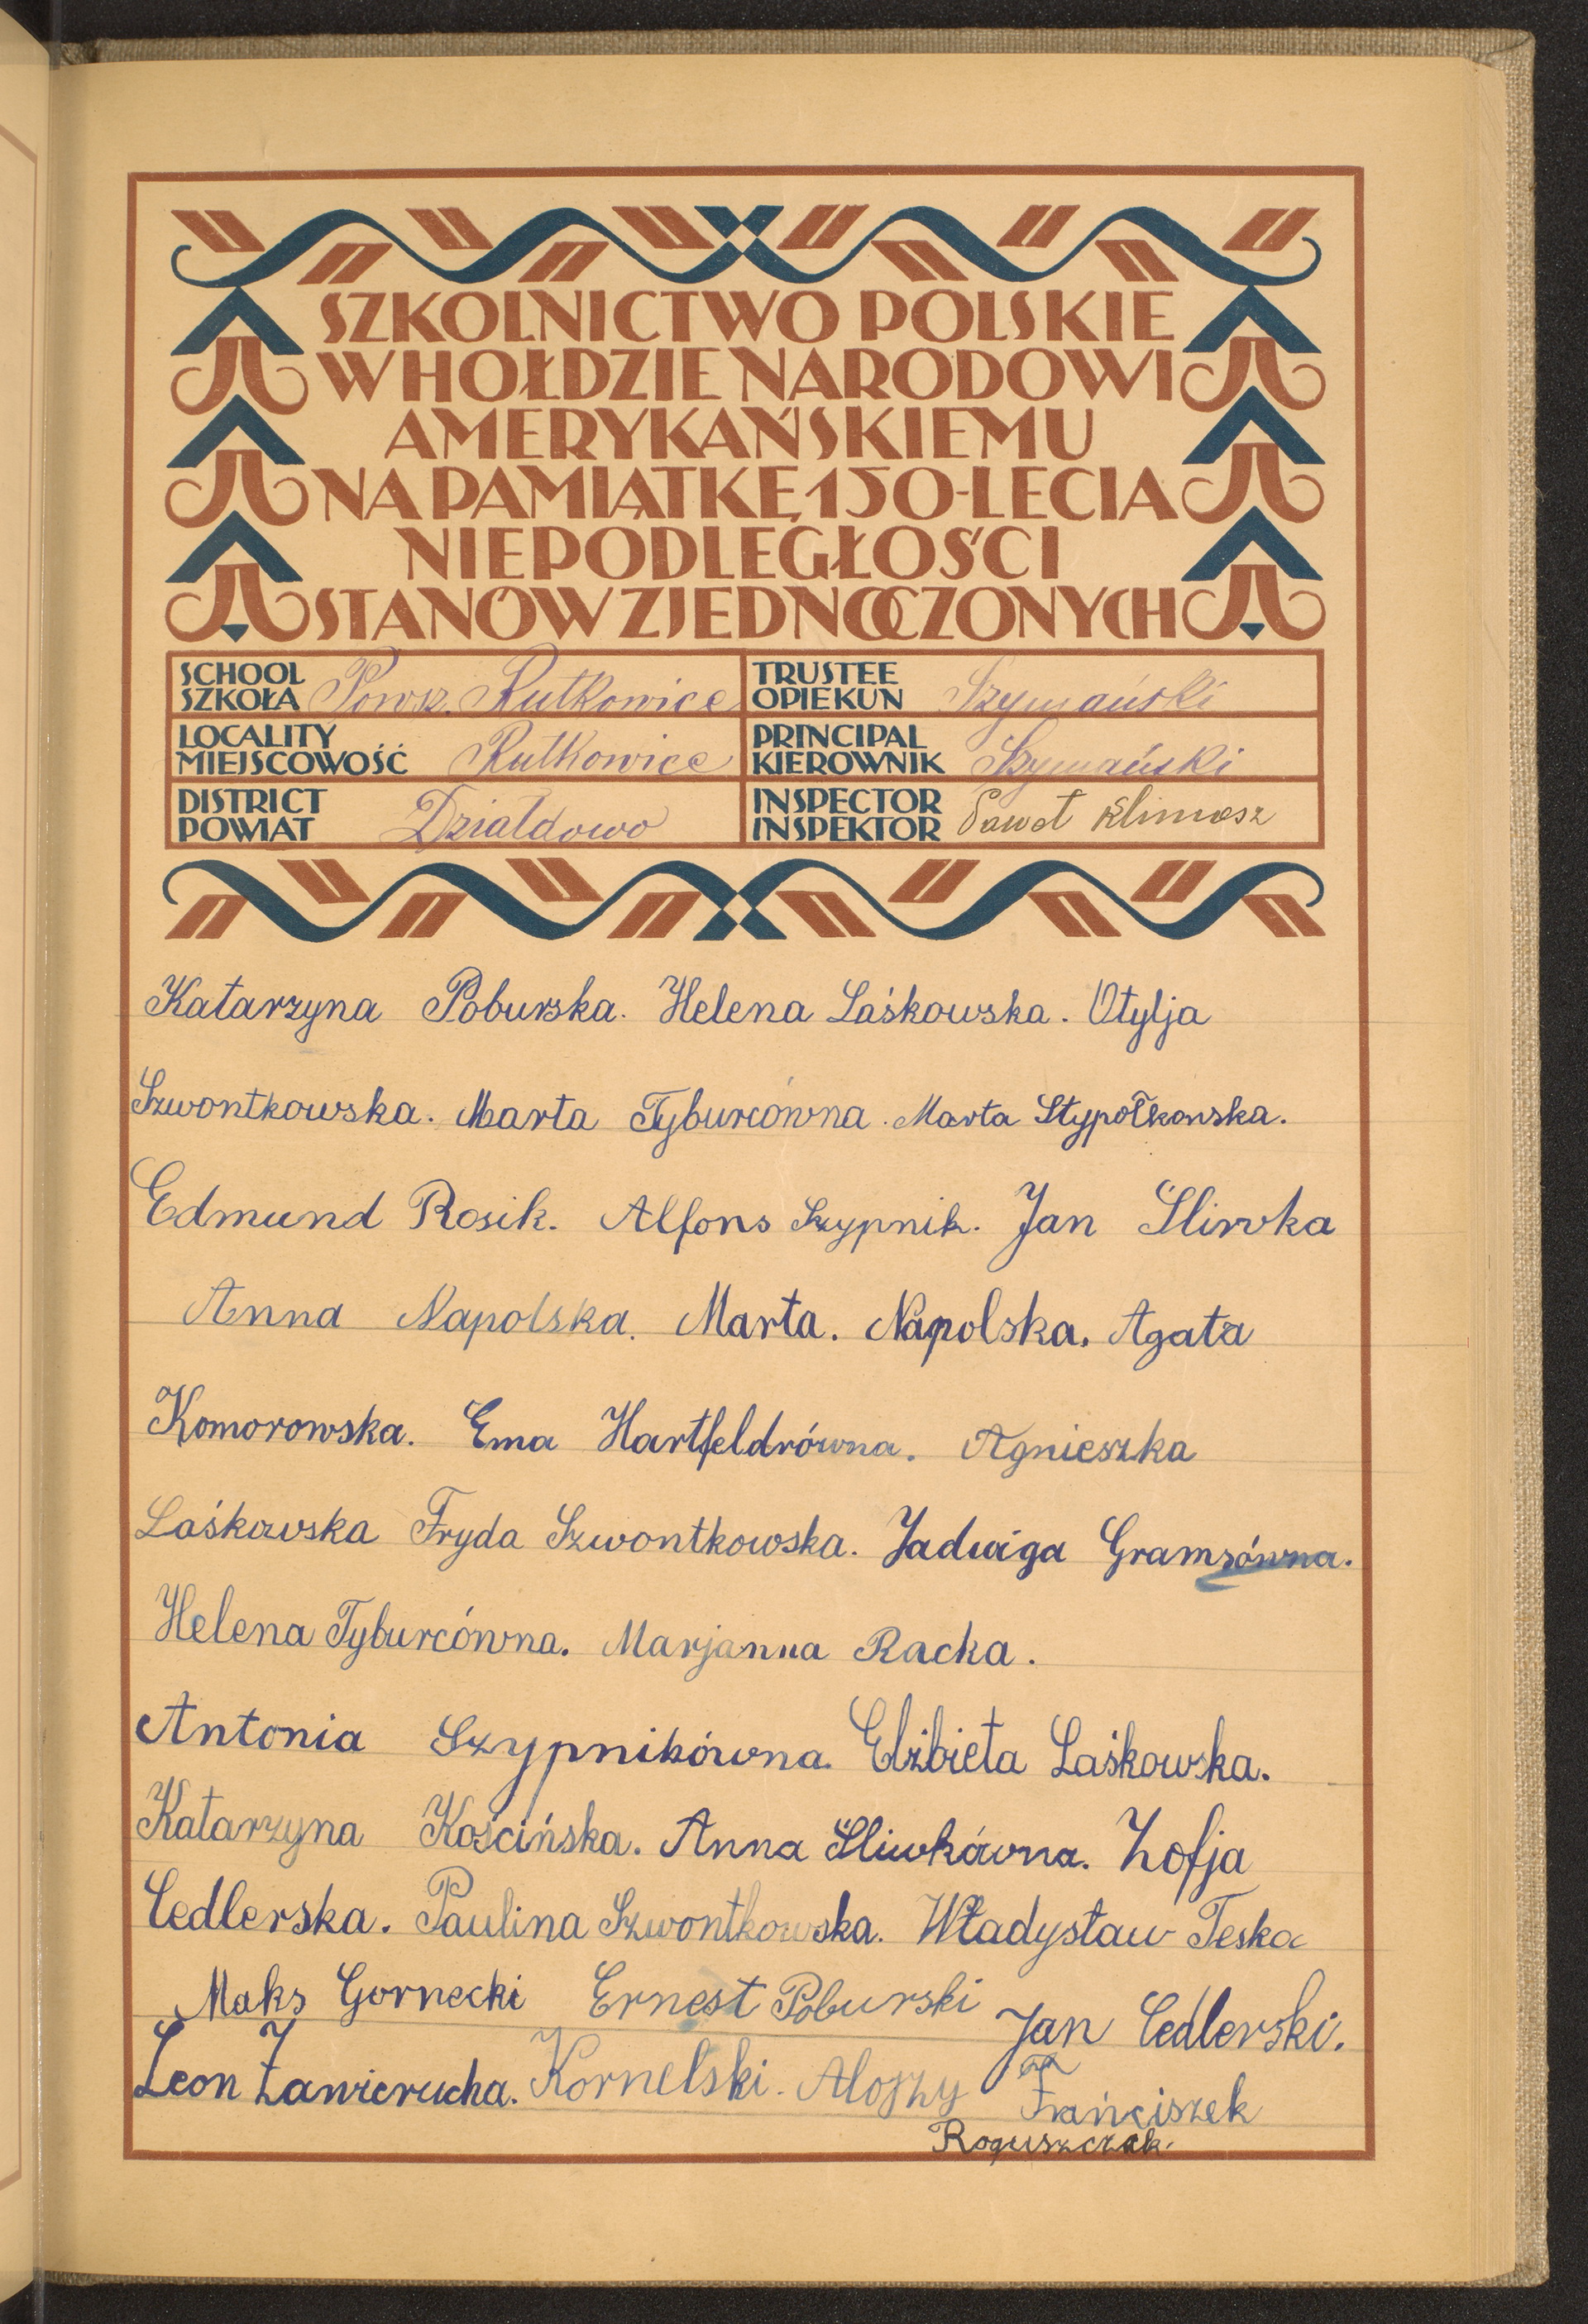 SZKOLNICTWO POLSKIE
W HOŁDZIE NARODOWI
AMERYKAŃSKIEMU
NA PAMIĄTKĘ 150-LECIA
NIEPODLEGŁOŚCI
STANÓW ZJEDNOCZONYCH
SCHOOL
SZKOŁA Powsz. Rutkowice
TRUSTEE
OPIEKUN Szymański
LOCALITY
MIEJSCOWOŚĆ Rutkowice
PRINCIPAL
KIEROWNIK Szymański
DISTRICT
POWIAT Działdowo
INSPECTOR
INSPEKTOR Paweł Klimosz
Katarzyna Poburska. Helena Laśkowska. Otylja
Szwontkowska. Marta Tyburcówna. Marta Stypołkowska.
Edmund Rosik. Alfons Szypnik. Jan Śliwka
Anna Napolska. Marta. Napolska. Agata
Komorowska. Ema Hartfeldrówna. Agnieszka
Laśkowska Fryda Szwontkowska. Jadwiga Gramsówna.
Helena Tyburcówna. Marjanna Racka.
Antonia Szypnikówna. Elżbieta Laśkowska.
Katarzyna Kościńska. Anna Śliwkówna. Zofja
Cedlerska. Paulina Szwontkowska. Władysław Teska
Maks Gornecki Ernest Poburski Jan Cedlerski.
Leon Zawierucha. Kornelski. Alojzy Frańciszek
Roguszczak.